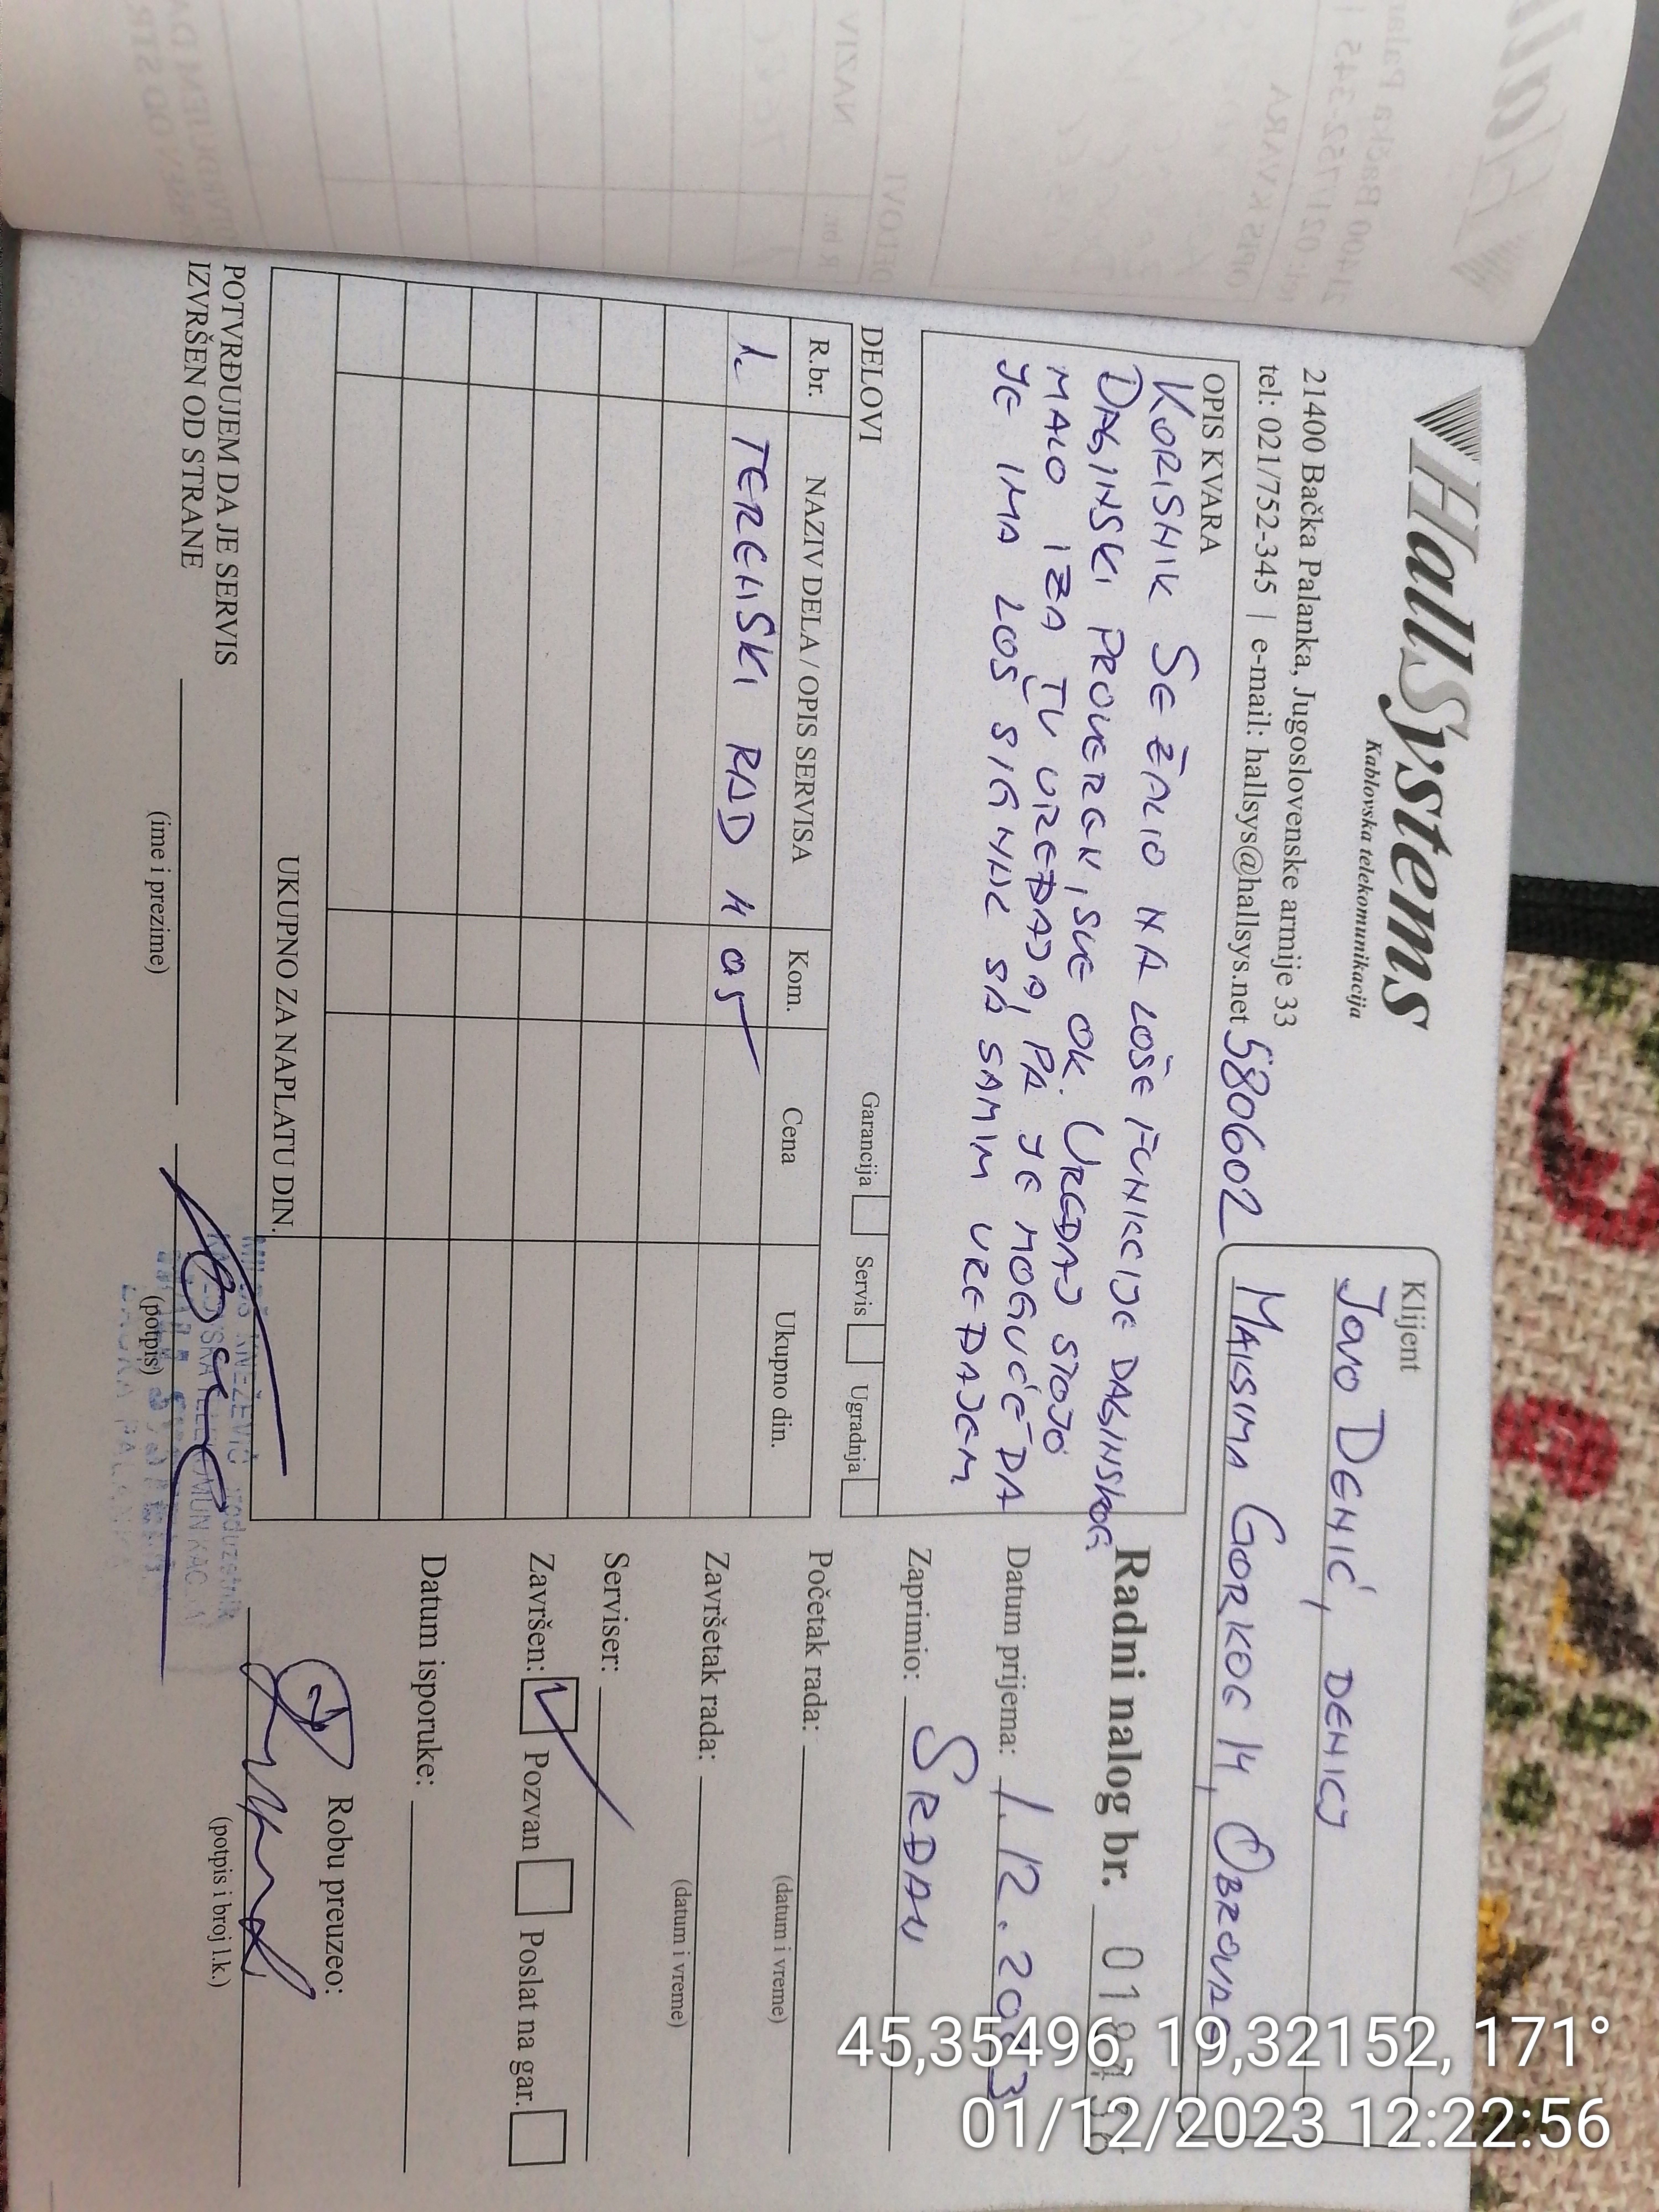 HallSystems
Kablovska telekomunikacija
21400 Bačka Palanka, Jugoslovenske armije 33
tel: 021/752-345 | e-mail: hallsys@hallsys.net 580602
Klijent
JOVO DENIĆ, DENICJ
MAKSIMA GORKOG 14, OBROVAC
OPIS KVARA
KORISNIK SE ŽALIO NA LOŠE FUNKCIJE DALJINSKOG
DALJINSKI PROVEREN, SVE OK. UREĐAJ STOJI
MALO IZA TV UREĐAJA, PA JE MOGUĆE DA
JE IMA LOŠ SIGNAL SA SAMIM UREĐAJEM
Radni nalog br.
Datum prijema: 1.12.2023
Zaprimio: SRĐAN
Početak rada:
(datum i vreme)
Završetak rada:
(datum i vreme)
Serviser:
Završen: Pozvan Poslat na gar.
Datum isporuke:
Robu preuzeo:
(potpis i broj l.k.)
DELOVI Garancija Servis Ugradnja
R.br. NAZIV DELA / OPIS SERVISA Kom. Cena Ukupno din.
1. TERENSKI RAD H 05
UKUPNO ZA NAPLATU DIN.
POTVRĐUJEM DA JE SERVIS
IZVRŠEN OD STRANE
(ime i prezime) (potpis)
KNEŽEVIĆ preduzetnik
45,35496, 19,32152, 171°
01/12/2023 12:22:56